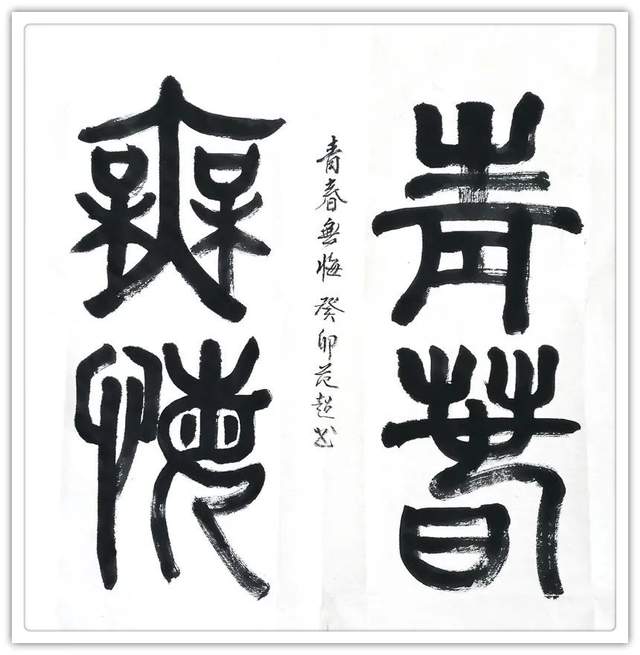 青春
無悔
青春無悔 癸卯范超书